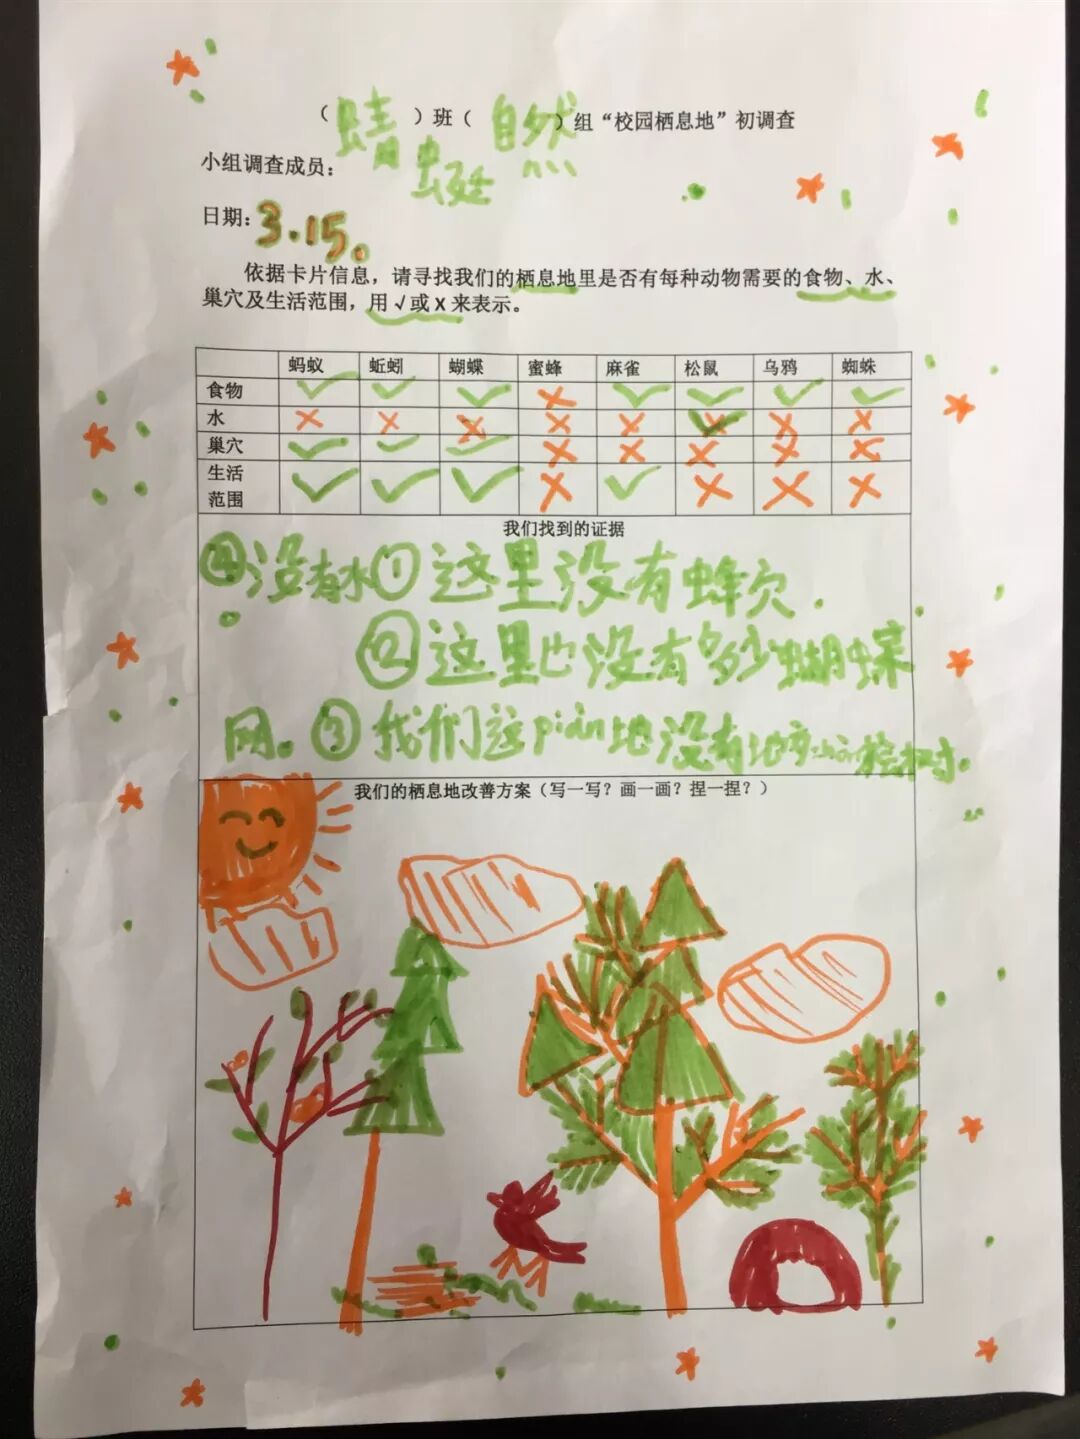 （蜻蜓）班（自然）组“校园栖息地”初调查
小组调查成员：
日期：3.15。
依据卡片信息，请寻找我们的栖息地里是否有每种动物需要的食物、水、
巢穴及生活范围，用√或X来表示。
蚂蚁 蚯蚓 蝴蝶 蜜蜂 麻雀 松鼠 乌鸦 蜘蛛
食物 ✓ ✓ ✓ ✗ ✓ ✓ ✓ ✓
水 ✗ ✗ ✗ ✗ ✗ ✗ ✗
巢穴 ✓ ✓ ✓ ✗ ✗ ✗ ✗ ✗
生活
范围 ✓ ✓ ✓ ✗ ✓ ✗ ✗ ✗
我们找到的证据
④没有水 ①这里没有蜂穴.
②这里也没有多少蝴蝶
网。③我们这piàn地没有地方
我们的栖息地改善方案（写一写？画一画？捏一捏？）